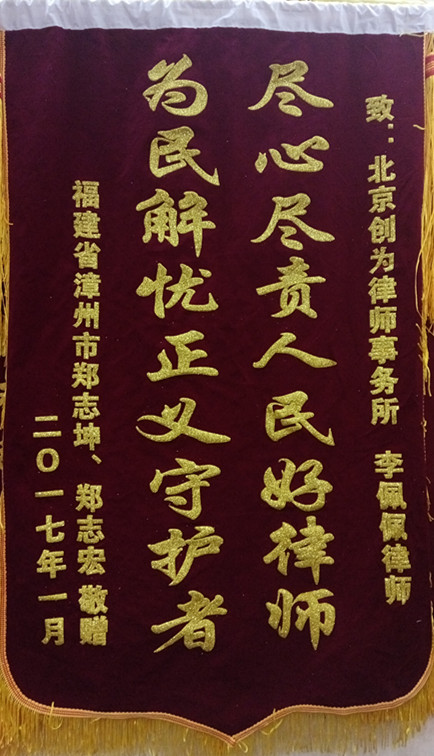 致：北京创为律师事务所 李佩佩律师
尽心尽责人民好律师
为民解忧正义守护者
福建省漳州市郑志坤、郑志宏 敬赠
二〇一七年一月